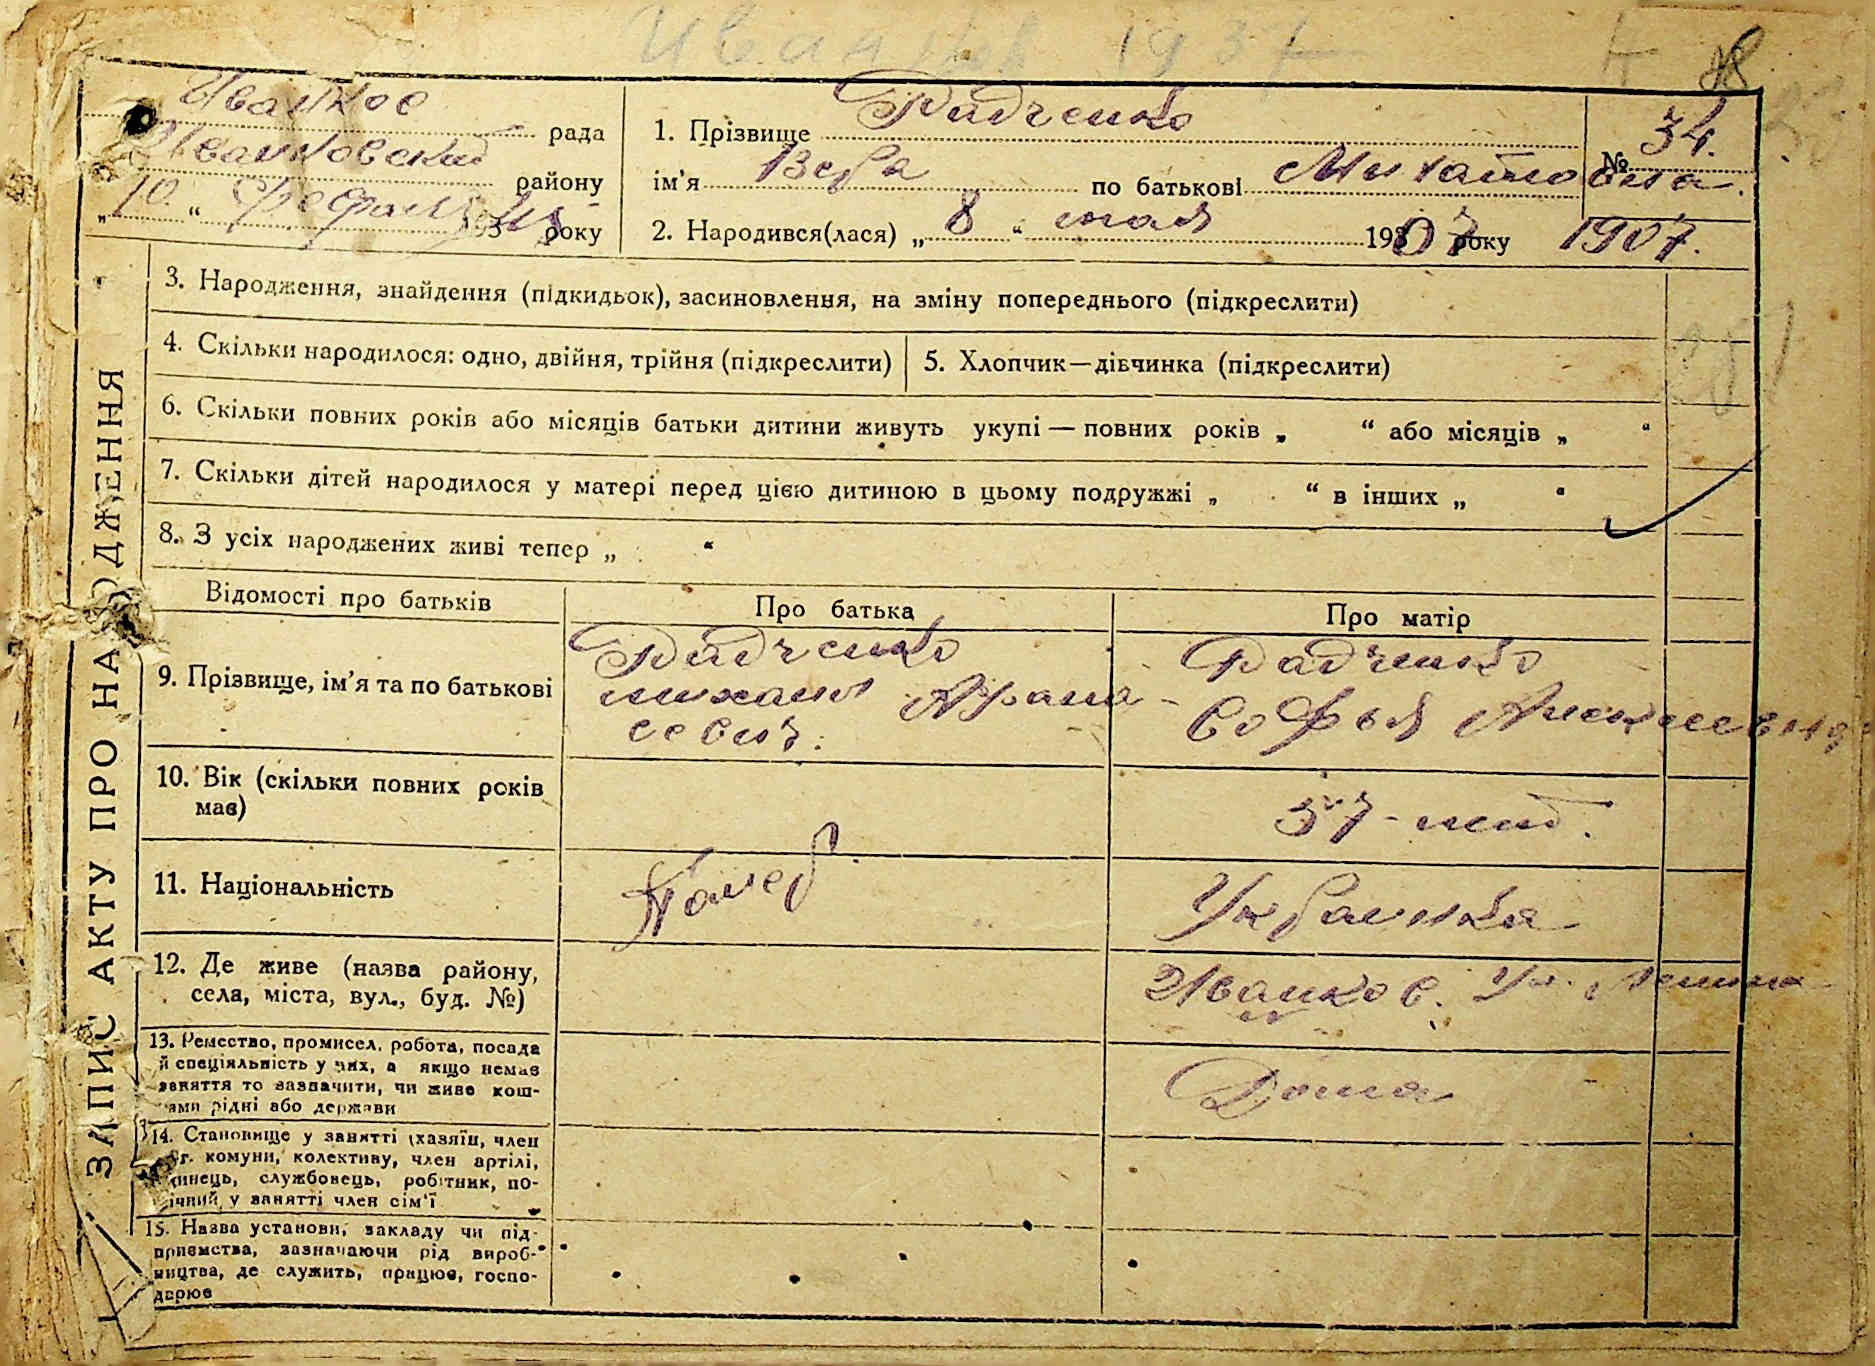 Иванков 1937
Иванков рада
Иванковский району
„ 10 “ февраля 193 року
1. Прізвище Радченко
ім'я Вера по батькові Михайловна.
2. Народився(лася) „ 8 “ мая 1907 року 1907.
№ 34.
ЗАПИС АКТУ ПРО НАРОДЖЕННЯ
3. Народження, знайдення (підкидьок), засиновлення, на зміну попереднього (підкреслити)
4. Скільки народилося: одно, двійня, трійня (підкреслити)
5. Хлопчик—дівчинка (підкреслити)
6. Скільки повних років або місяців батьки дитини живуть укупі — повних років „ “ або місяців „ “
7. Скільки дітей народилося у матері перед цією дитиною в цьому подружжі „ “ в інших „ “
8. З усіх народжених живі тепер „ “
Відомості про батьків
Про батька
Про матір
9. Прізвище, ім'я та по батькові
Радченко
михаил Афана-
севич.
Радченко
Софья Алексеевна
10. Вік (скільки повних років
має)
57 - лет.
11. Національність
Помер
Украинка
12. Де живе (назва району,
села, міста, вул., буд. №)
Иванков. Ул. Ленина
13. Ремество, промисел, робота, посада
й спеціяльність у них, а якщо немає
заняття то зазначити, чи живе кош-
тами рідні або держави
Дома
14. Становище у занятті (хазяїн, член
с.-г. комуни, колективу, член артілі,
службовець, робітник, по-
мічний у занятті член сім'ї
15. Назва установи, закладу чи під-
приємства, зазначаючи рід вироб-
ництва, де служить, працює, госпо-
дарює